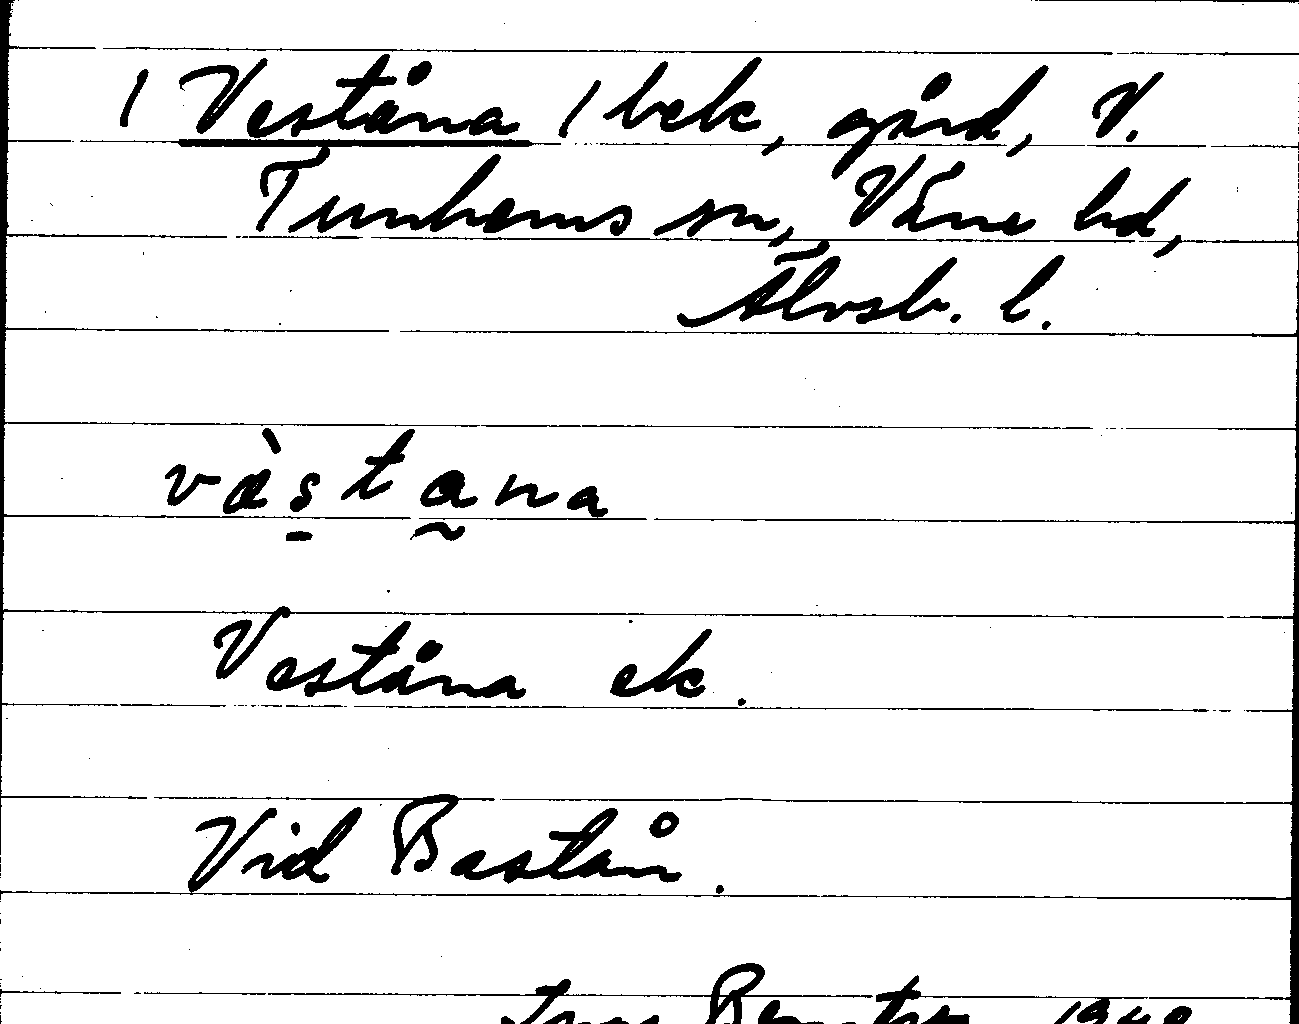 ( Veståna ( bek, gård, V.
Tunhems sn, Väne hd,
Älvsb. l.
væ̀s̱ta̰na
Veståna ek.
Vid Bastån.